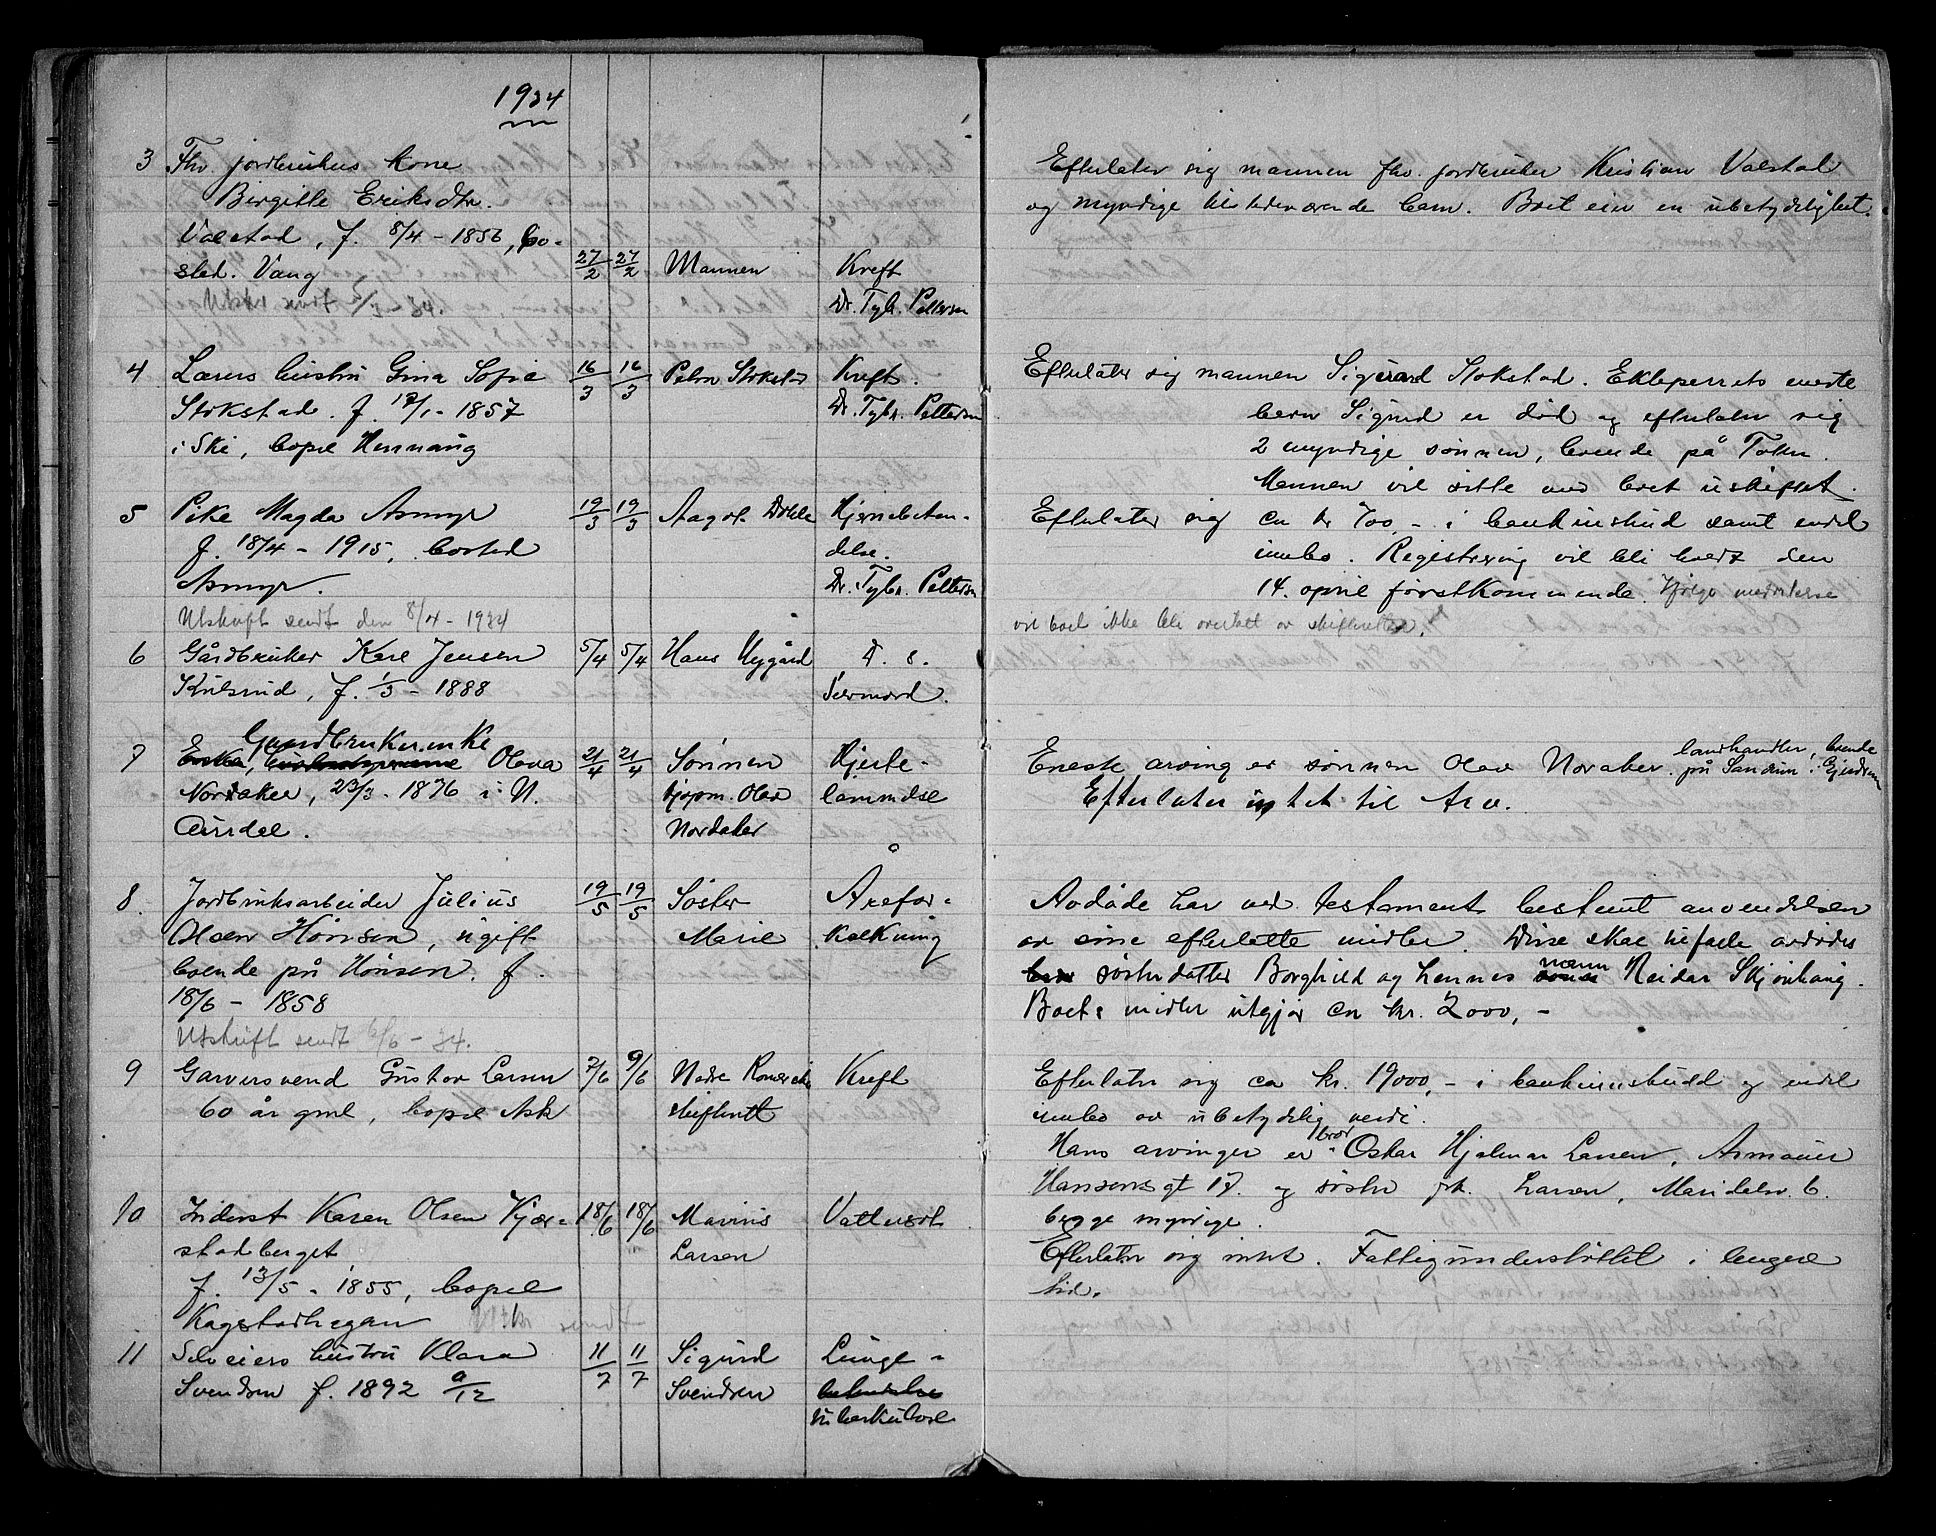 1934
3 Fhv. jordbrukers kone
Birgitte Eriksdtr.
Valstad, f. 8/4 - 1856, bo-
sted. Vang
Utskr. sendt - 34.
27/2 27/2 Mannen Kreft
Dr. Tybr. Pettersen
Efterlater sig mannen fhv. jordbruker Kristian Valstad
og myndige tilstedeværende barn. Boet eier en ubetydelighet.
4 Lærers hustru Gina Sofie
Stokstad. f. 17/1 - 1857
i Ski, bopel Hennaug
16/3 16/3 Petra Stokstad Kreft.
Dr. Tybr. Pettersen
Efterlater sig mannen Sigvard Stokstad. Ekteparrets eneste
barn Sigurd er død og efterlater sig
2 myndige sønner, boende på Toten.
Mannen vil sitte med boet uskiftet.
5 Pike Magda Asmyr
f. 18/4 - 1915, bosted
Asmyr.
Utskrift sendt den 8/4 - 1934
19/3 19/3 Aagot Dahle Hjernebeten-
delse.
Dr. Tybr. Pettersen
Efterlater sig ca kr 700 - i bankinskud samt endel
innbo. Registrering vil bli holdt den
14. april førstkommende. Ifølge meddelelse
vil boet ikke bli overtatt av skifteretten.
6 Gårdbruker Karl Jensen
Kulsrud, f. 1/3 - 1888
5/4 5/4 Hans Nygård D. 8.
Selvmord.
7 Gaardbrukerenke
Enke, Olava
Nordaker, 23/3 - 1876 i N.
Aurdal.
21/4 21/4 Sønnen
kjøpm. Olav
Nordaker
Hjerte-
lammelse
Eneste arving er sønnen Olav Noraker. landhandler, boende
på Sandum i Gjerdrum
Efterlater intet til Arv.
8. Jordbruksarbeider Julius
Olsen Hønsen, ugift
boende på Hønsen. f.
18/6 - 1858
Utskrift sendt 6/6 - 34.
19/5 19/5 Søster
Marie
Årefor-
kalkning
Avdøde har ved testament bestemt anvendelsen
av sine efterlatte midler. Disse skal tilfalle avdødes
søsterdatter Borghild og hennes mann Reidar Skjønhaug.
Boets midler utgjør ca kr. 2000, -
9 Garversvend Gustav Larsen
60 år gml, bopel Ask
7/6 9/6 Nedre Romerike
skifterett
Kreft
Efterlater sig ca kr. 19000, - i bankinnskudd og endel
innbo av ubetydelig verdi.
Hans arvinger er bror Oskar Hjalmar Larsen, Armauer
Hansens gt 17. og søster frk. Larsen, Maridalsv. 6.
begge myndige.
10 Inderst Karen Olsen Kjær-
stadberget
f. 13/5 - 1855, bopel
Kagstadhagan
18/6 18/6 Marius
Larsen
Vattersot
Efterlater sig intet. Fattigunderstøttet i lengere
tid.
11 Selveiers hustru Klara
Svendsen f. 1892 9/12
11/7 11/7 Sigurd
Svendsen
Lunge-
betendelse
tuberkulose